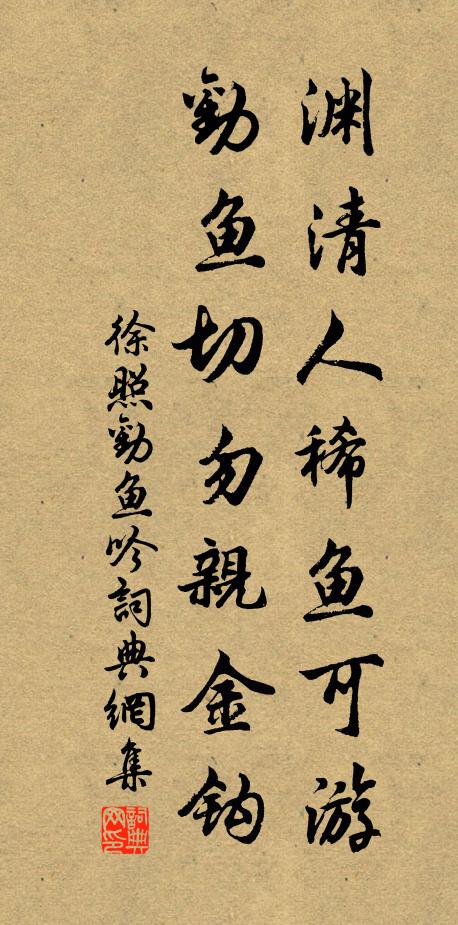 渊清人稀鱼可游
勸鱼切勿親金钩
徐照勸鱼吟詞典網集
詞典网印